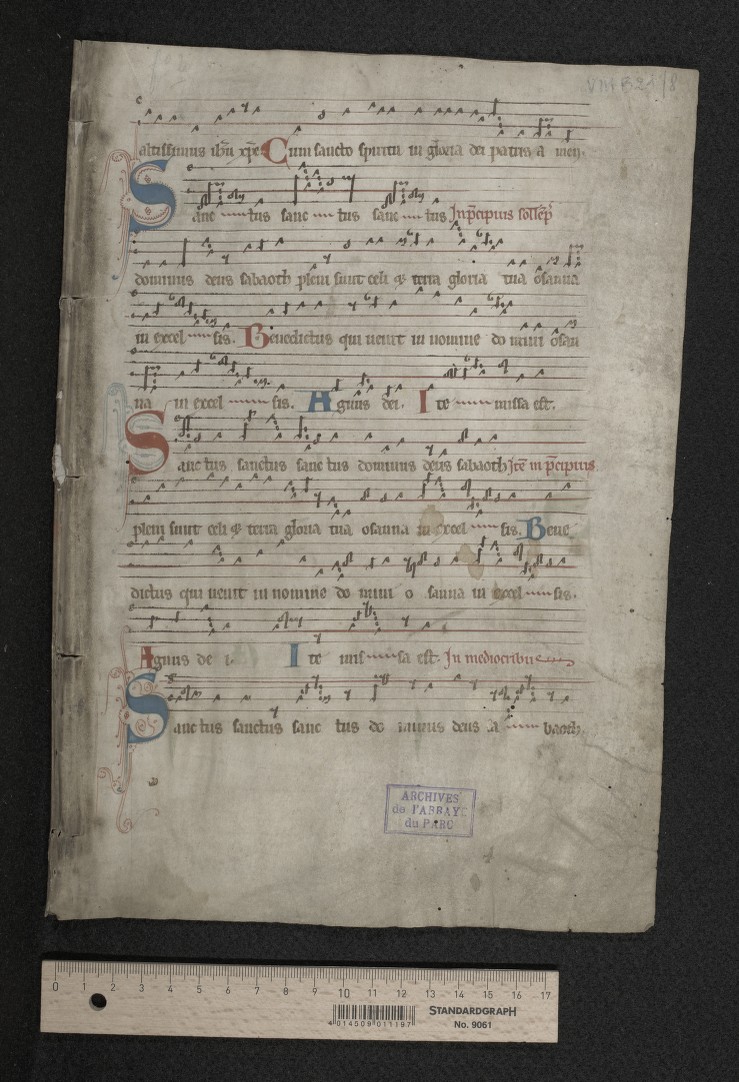 VIII B 21 / 8
altissimus ihū xpē Cum sancto spiritu in gloria dei patris a men.
Sanc tus sanc tus sanc tus In p̄cipuis sollēp̄
dominus deus sabaoth pleni sunt celi & terra gloria tua osanna
in excel sis. Benedictus qui uenit in nomine do mini osan
na in excel sis. Agnus dei. Ite missa est.
Sanctus sanctus sanctus dominus deus sabaoth Itē in p̄cipuis
pleni sunt celi & terra gloria tua osanna in excel sis. Bene
dictus qui uenit in nomine do mini o sanna in excel sis.
Agnus de i. Ite mis sa est. In mediocribus
Sanctus sanctus sanc tus do minus deus sa baoth.
ARCHIVES
de l'ABBAYE
du PARC
0 1 2 3 4 5 6 7 8 9 10 11 12 13 14 15 16 17
4 014509 011197
STANDARDGRAPH
No. 9061